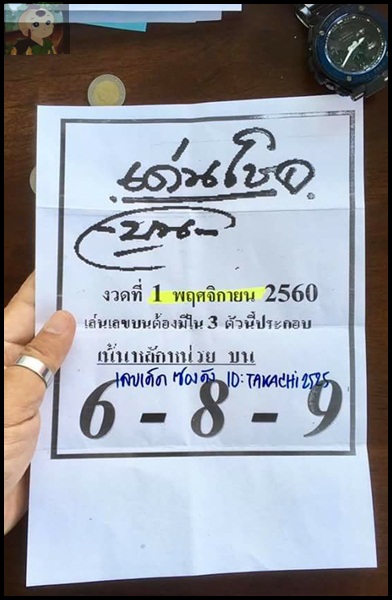 เด่นโชค
-บน-
งวดที่ 1 พฤศจิกายน 2560
เล่นเลขบนต้องมีใน 3 ตัวนี้ประกอบ
เน้นหลักหน่วย บน
เลขเด็ด ซองดัง ID: TAKACHI2525
6 - 8 - 9